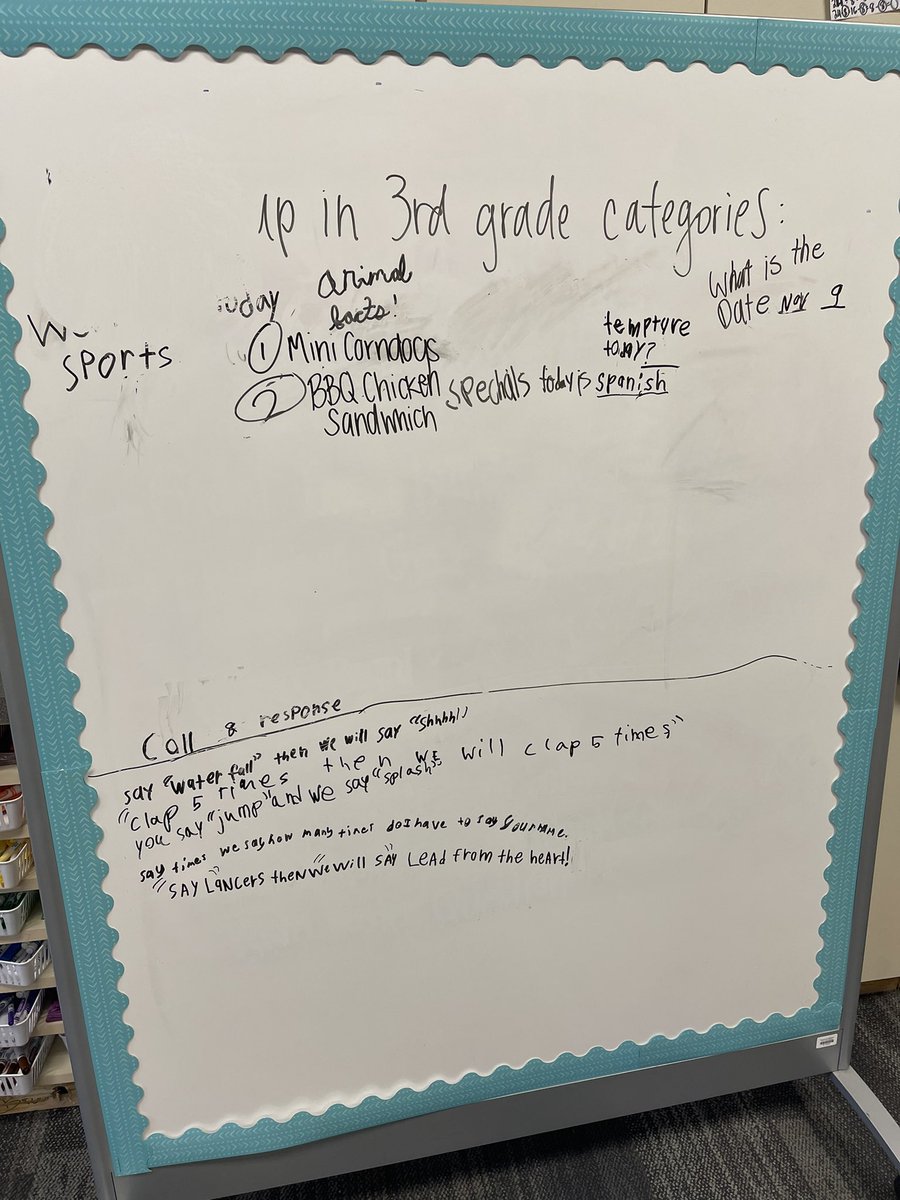 up in 3rd grade categories:
What is the
Date Nov 9
animal
facts!
sports
① Mini Corndogs
② BBQ Chicken
Sandwhich
tempture
today?
spechals today is spanish
Call & response
say "water fall" then we will say "shhhh"
"clap 5 times then we will clap 5 times"
you say "jump" and we say "splash"
say times we say how many times do I have to say your name.
"SAY LANcers theN "We will SAY" LEAd from the heArt!